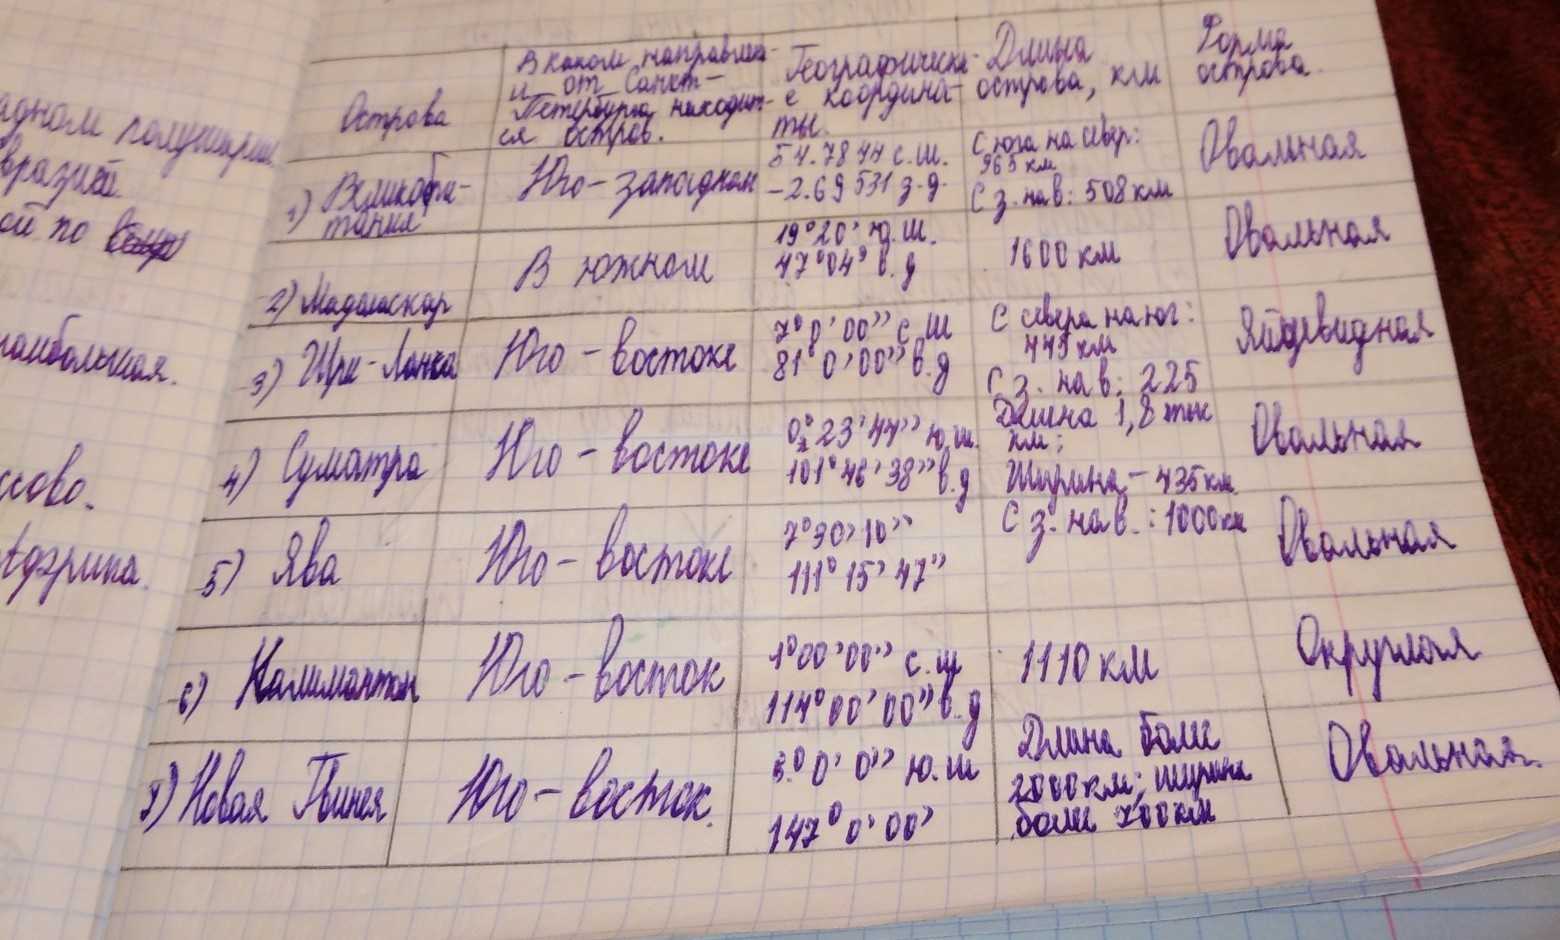 адном полушарии.
вразией
ой по
наибольшая.
ссово.
Африка.
Острова
В каком направлен-
и от Санкт-
Петербурга находит-
ся остров.
Географически-
е координа-
ты.
Длина
острова, км
Форма
острова.
1) Великобри-
тания
Юго-западном
54.7844 с.ш.
-2.69531 з.д.
С юга на север:
965 км
С з. на в: 508 км
Овальная
2) Мадагаскар
В южном
19°20' ю.ш.
47°04' в.д
1600 км
Овальная
3) Шри-Ланка
Юго-востоке
7°0'00" с.ш
81°0'00" в.д
С севера на юг:
445 км
С з. на в: 225
Яйцевидная
4) Суматра
Юго-востоке
0°23'44" ю.ш.
101°46'38" в.д
Длина 1,8 тыс
км;
Ширина - 435 км
Овальная
5) Ява
Юго-востоке
7°30'10"
111°15'47"
С з. на в. : 1000км
Овальная
6) Калимантан
Юго-восток
1°00'00" с.ш
114°00'00" в.д
1110 км
Округлая
7) Новая Гвинея
Юго-восток.
5.°0'0" ю.ш
147°0'00'
Длина боле
2000км; ширина
боле 700км
Овальная.